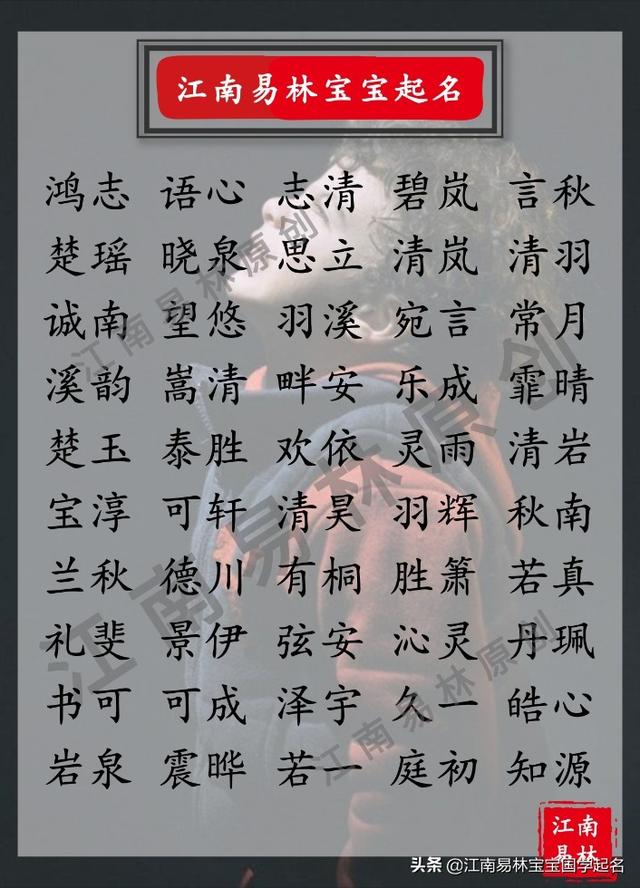 江南易林宝宝起名
鸿志 语心 志清 碧岚 言秋
楚瑶 晓泉 思立 清岚 清羽
诚南 望悠 羽溪 宛言 常月
溪韵 嵩清 畔安 乐成 霏晴
楚玉 泰胜 欢依 灵雨 清岩
宝淳 可轩 清昊 羽辉 秋南
兰秋 德川 有桐 胜箫 若真
礼斐 景伊 弦安 沁灵 丹珮
书可 可成 泽宇 久一 皓心
岩泉 震晔 若一 庭初 知源
江南易林原创
江南易林原创
江南易林原创
江南
易林
头条 @江南易林宝宝国学起名